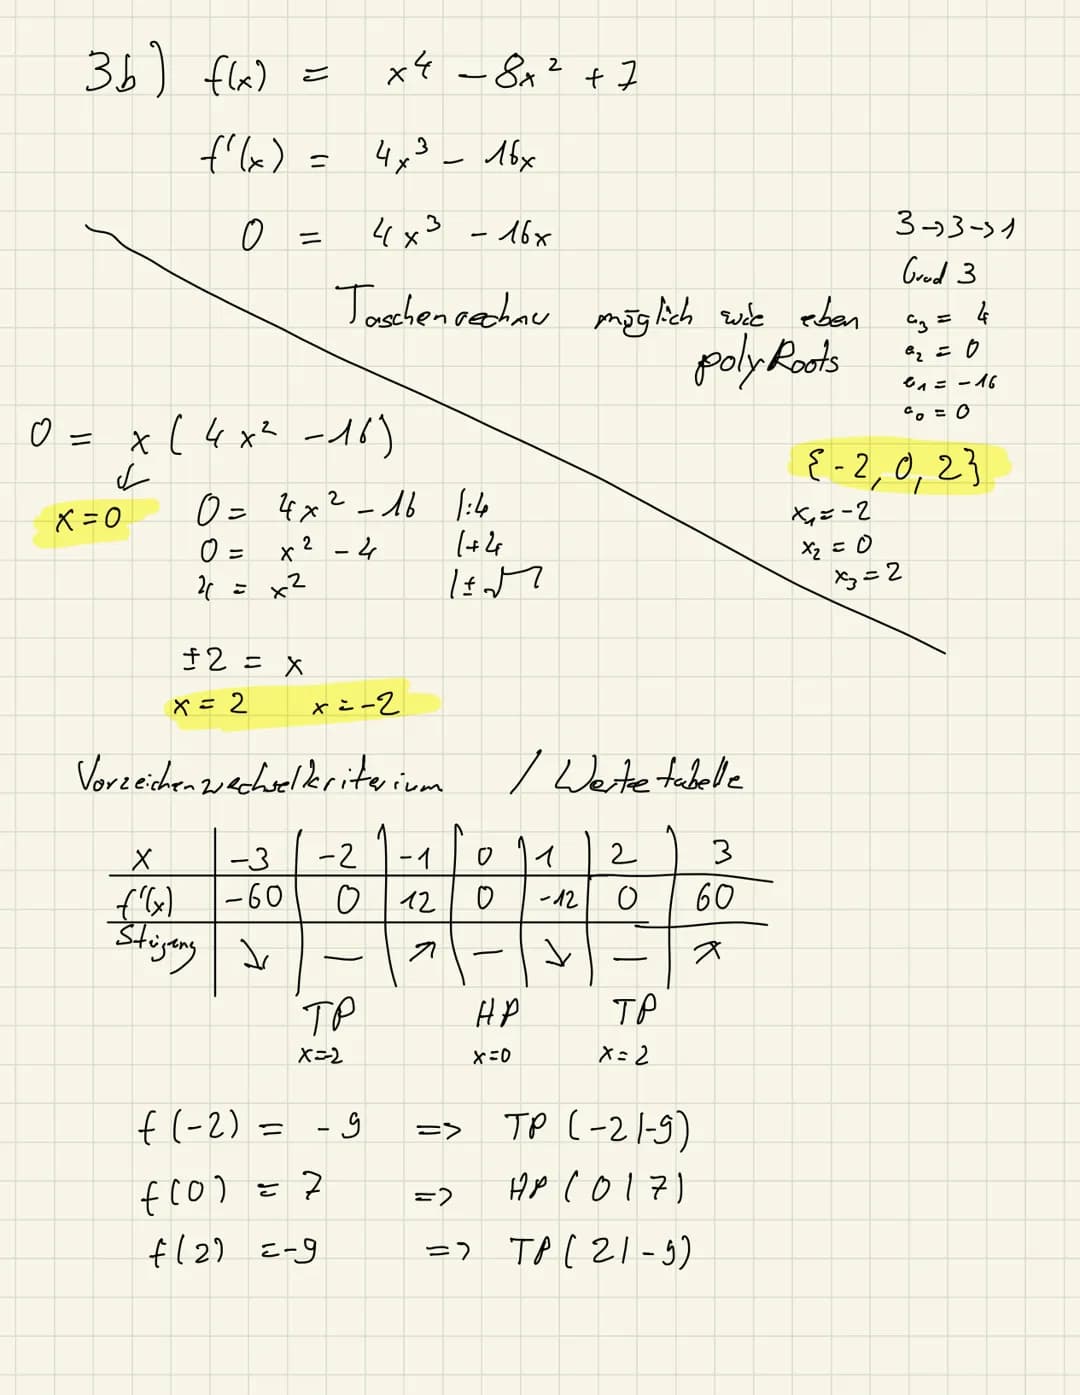 3b) f(x) = x⁴ - 8x² + 7
f'(x) = 4x³ - 16x
0 = 4x³ - 16x
Taschenrechner möglich wie eben
polyRoots
3→3→1
Grad 3
a₃ = 4
a₂ = 0
a₁ = -16
a₀ = 0
{-2, 0, 2}
x₁ = -2
x₂ = 0
x₃ = 2
0 = x (4x² - 16)
x = 0
0 = 4x² - 16 |:4
0 = x² - 4 |+4
4 = x² |±√
±2 = x
x = 2 x = -2
Vorzeichenwechselkriterium / Wertetabelle
x | -3 | -2 | -1 | 0 | 1 | 2 | 3
f'(x) | -60 | 0 | 12 | 0 | -12 | 0 | 60
Steigung | ↘ | — | ↗ | — | ↘ | — | ↗
TP HP TP
x=-2 x=0 x=2
f(-2) = -9 => TP (-2|-9)
f(0) = 7 => HP (0|7)
f(2) = -9 => TP (2|-9)